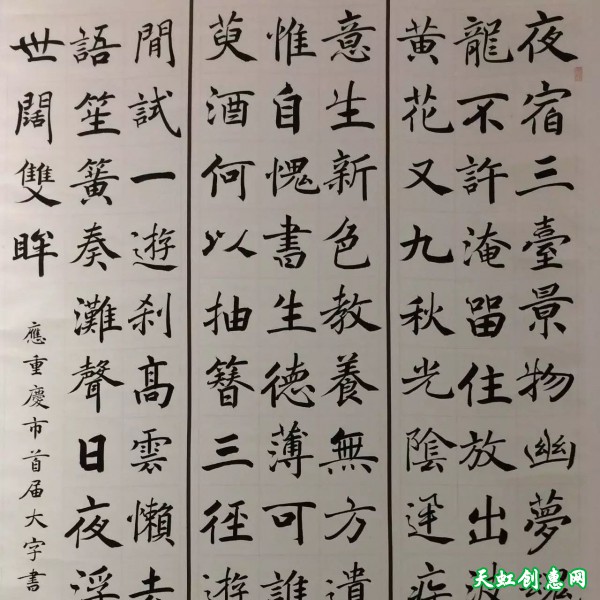 夜宿三臺景物幽夢
龍不許淹留住放出
黃花又九秋光陰迅
意生新色教養無方遺
惟自愧書生德薄可
萸酒何以抽簪三徑遊
閒試一遊剎高雲懶
語笙簧奏灘聲日夜浮
世闊雙眸
應重慶市首届大字書
天虹创惠网